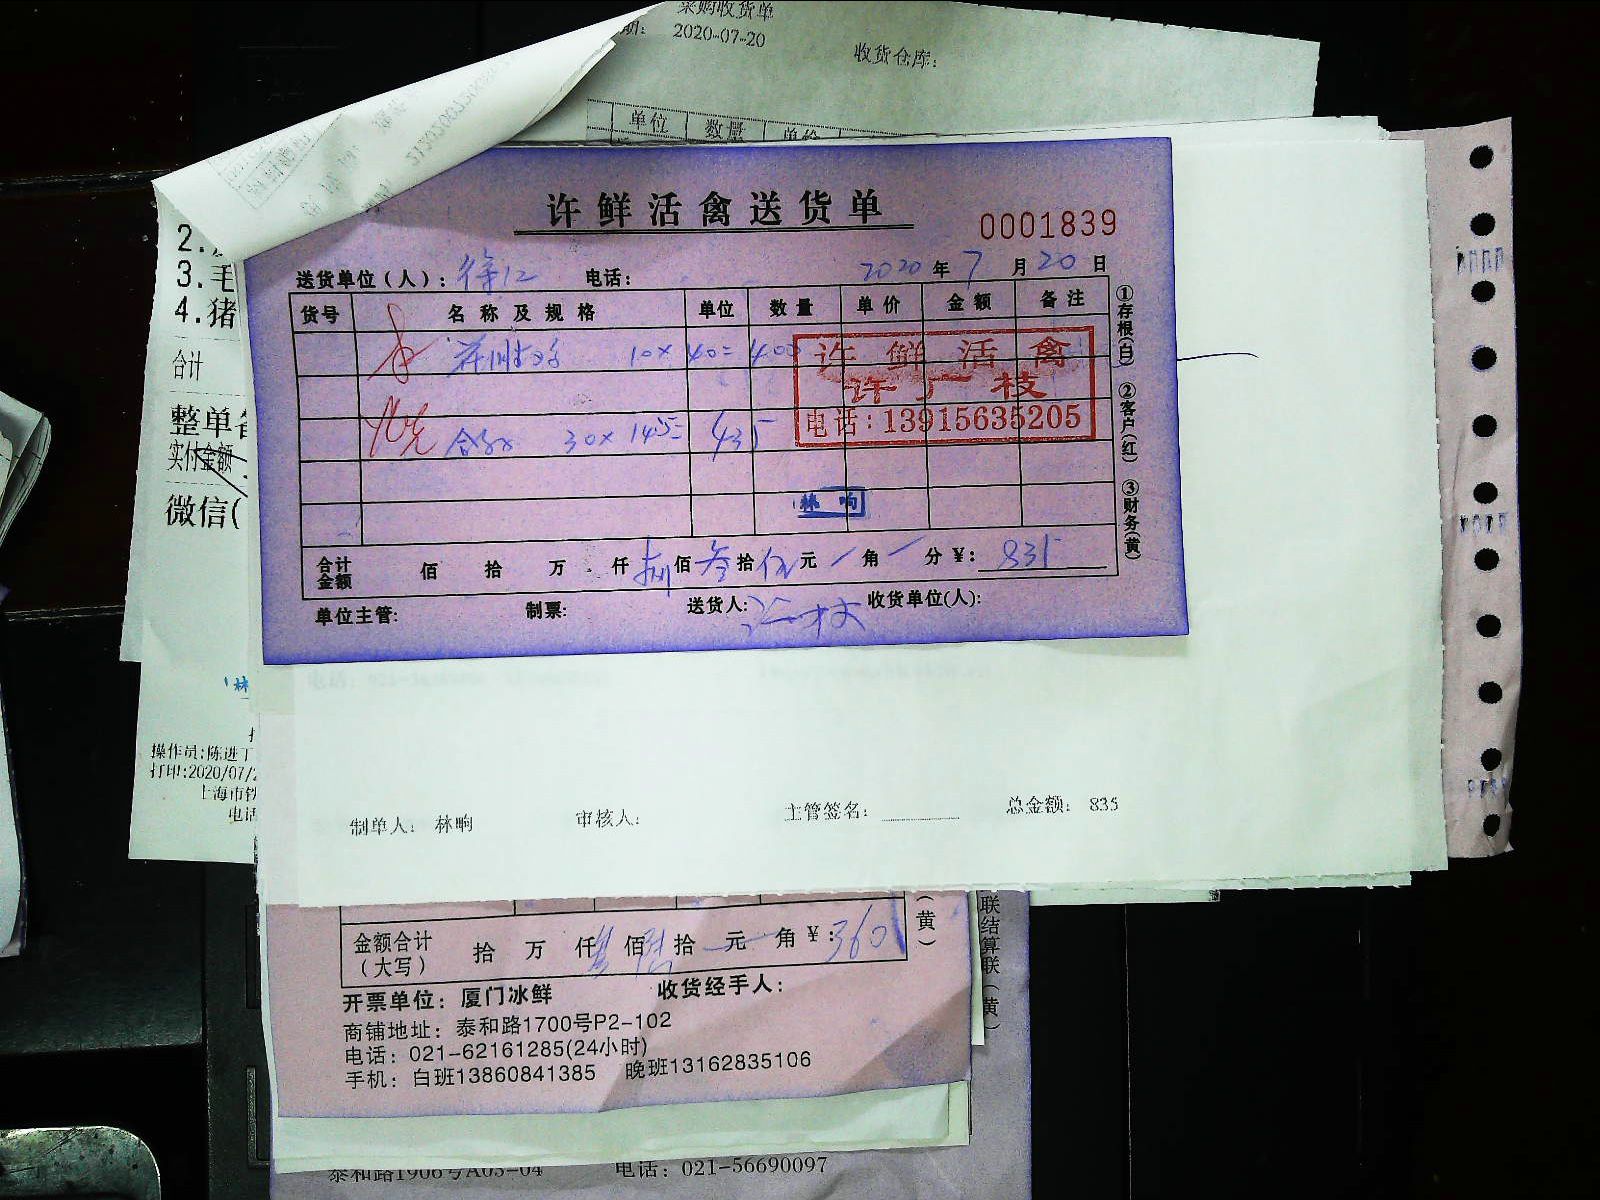 采购收货单
期: 2020-07-20
收货仓库:
单位 数量 单价
2.
3.毛
4.猪
合计
整单
实付金额
微信(
许鲜活禽送货单
0001839
送货单位(人): 电话: 2020 年 7 月 20 日
货号 名称及规格 单位 数量 单价 金额 备注
10× 40= 400
30× 14.5= 435
许鲜活禽
许广枝
电话:13915635205
林响
合计金额 佰 拾 万 仟 捌 佰 叁 拾 伍 元 角 分 ¥: 835
单位主管: 制票: 送货人: 收货单位(人):
①存根(白) ②客户(红) ③财务(黄)
林
操作员:陈进丁
打印:2020/07/2
上海市铁
电话
制单人: 林响 审核人: 主管签名: 总金额: 835
金额合计(大写) 拾 万 仟 叁 佰 陆 拾 元 角 ¥: 360
(黄)
联结算联(黄)
开票单位: 厦门冰鲜 收货经手人:
商铺地址: 泰和路1700号P2-102
电话: 021-62161285(24小时)
手机: 白班13860841385 晚班13162835106
泰和路1906号A03-04 电话: 021-56690097